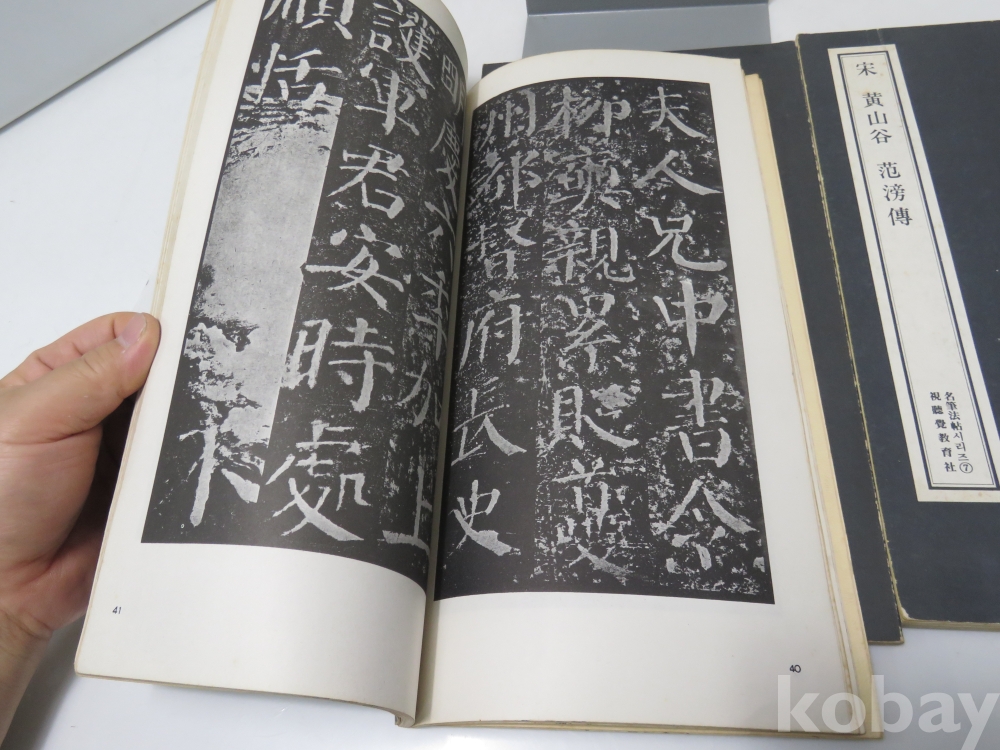 夫人兄中書令
柳奭親累貶夔
州都督府長史
慶六年加上
護軍君安時處
順恬
不
41
40
宋 黃山谷 范滂傳
名筆法帖시리즈⑦
視聽覺教育社
kobay